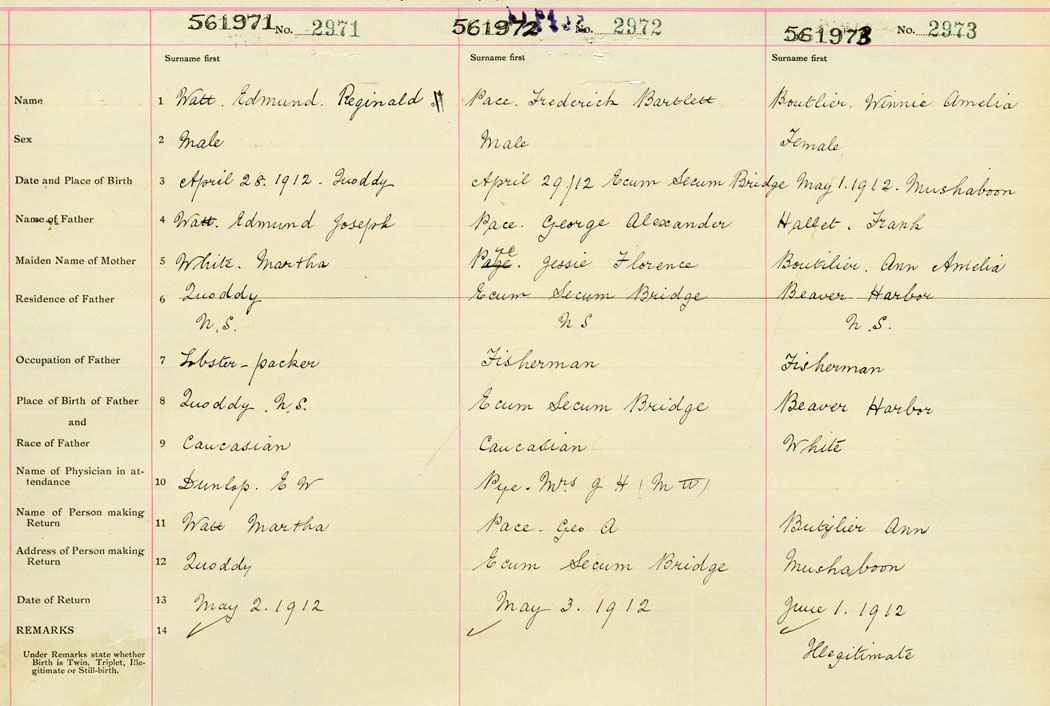 561971 No. 2971 561972 No. 2972 561973 No. 2973
Surname first Surname first Surname first
Name 1 Watt. Edmund. Reginald Pace. Frederick Bartlett Boutlier. Winnie Amelia
Sex 2 Male Male Female
Date and Place of Birth 3 April 28. 1912 - Quoddy April 29/12 Ecum Secum Bridge May 1. 1912. Mushaboon
Name of Father 4 Watt. Edmund Joseph Pace. George Alexander Hallet. Frank
Maiden Name of Mother 5 White. Martha Pace. Jessie Florence Boutilier. Ann Amelia
Residence of Father 6 Quoddy Ecum Secum Bridge Beaver Harbor
N.S. N S N.S.
Occupation of Father 7 Lobster-packer Fisherman Fisherman
Place of Birth of Father 8 Quoddy. N.S. Ecum Secum Bridge Beaver Harbor
and
Race of Father 9 Caucasian Caucasian White
Name of Physician in at-
tendance 10 Dunlop. E W Pye. Mrs J H (M W)
Name of Person making
Return 11 Watt Martha Pace. Geo A Butylier Ann
Address of Person making
Return 12 Quoddy Ecum Secum Bridge Mushaboon
Date of Return 13 May 2. 1912 May 3. 1912 June 1. 1912
REMARKS 14
Under Remarks state whether
Birth is Twin, Triplet, Ille-
gitimate or Still-birth.
Illegitimate